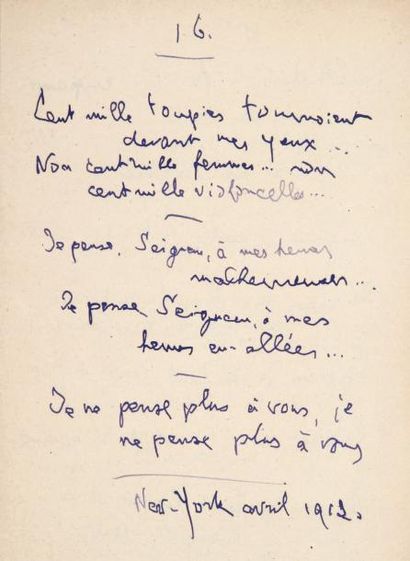 16.
Cent mille toupies tournoient
devant mes yeux...
Non cent mille femmes... non
cent mille violoncelles...
Je pense, Seigneur, à mes heures
malheureuses...
Je pense Seigneur, à mes
heures en-allées...
Je ne pense plus à vous, je
ne pense plus à vous
New-York avril 1912.